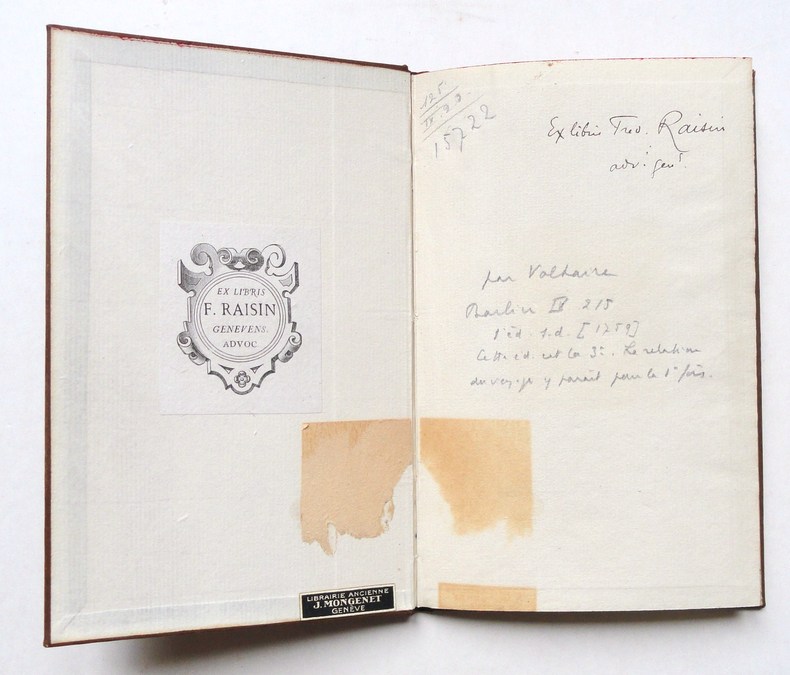 EX LIBRIS
F. RAISIN
GENEVENS.
ADVOC
LIBRAIRIE ANCIENNE
J. MONGENET
GENÈVE
125.
15722
Ex libris Fred. Raisin
adv. genv.
par Voltaire
IV 215
1e éd. s.d. [1759]
Cette éd. est la 3e. La relation
du voyage y paraît pour la 1e fois.